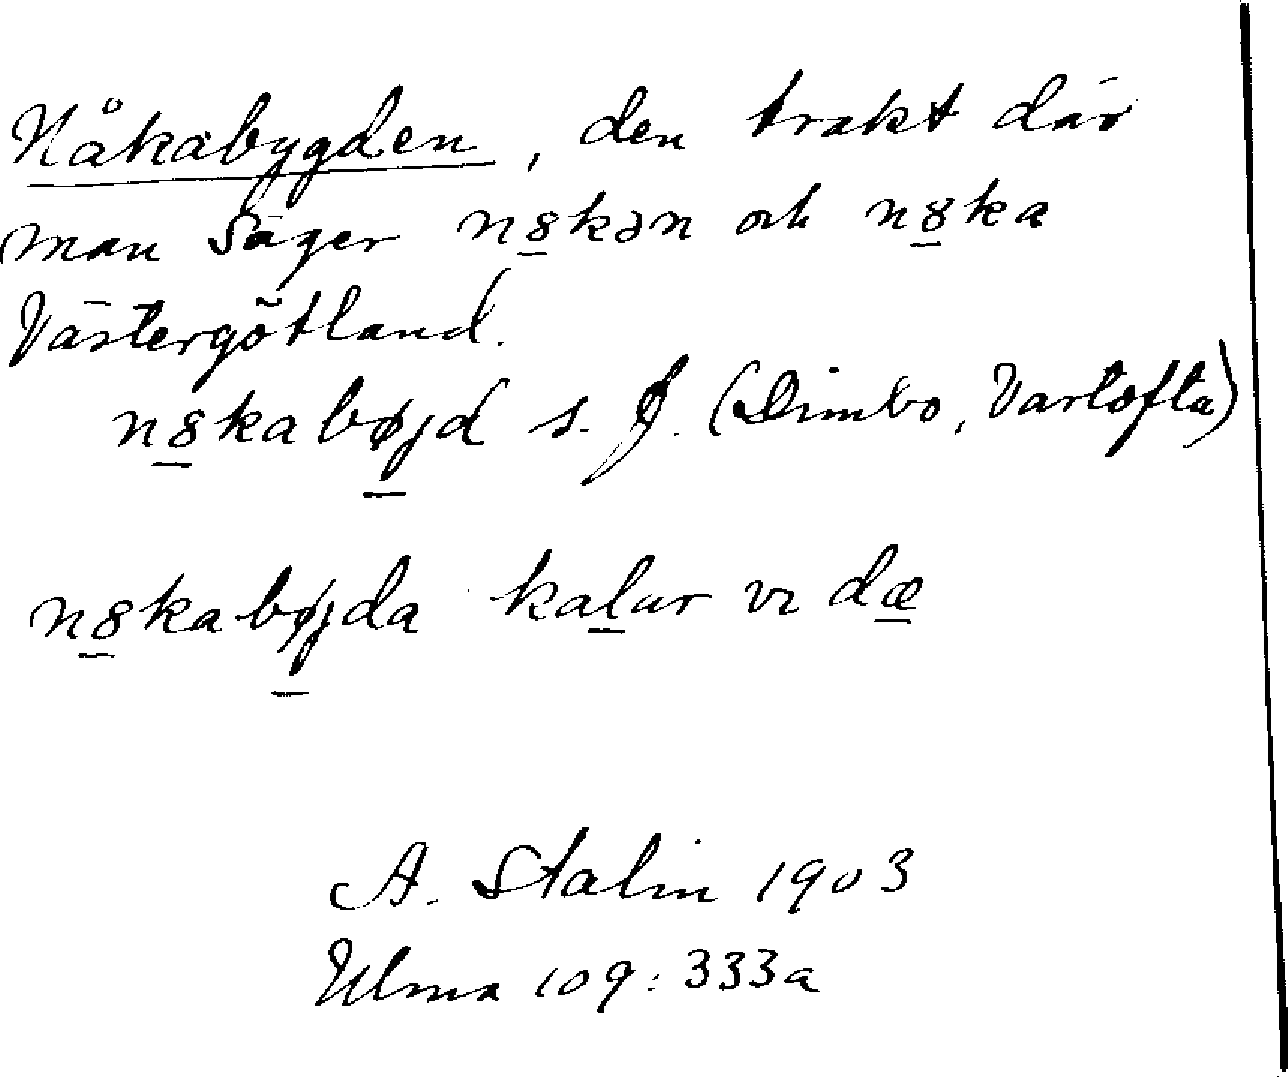 Nåkabygden, den trakt där
man säger n8kən och n8ka
Västergötland.
n8kabøjd s. f. (Dimbo, Vartofta)
n8kabøjda kalar vi dæ
A. Stalin 1903
Ulma 109: 333a